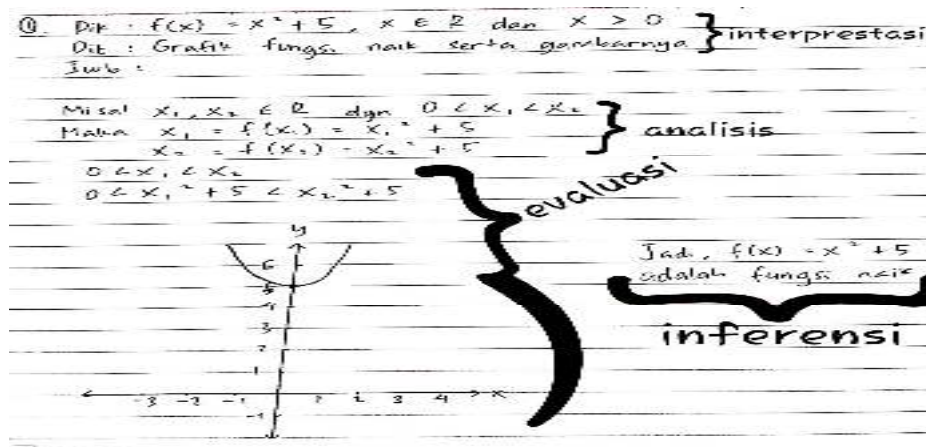 ① Dik : f(x) = x² + 5, x ∈ R dan x > 0
Dit : Grafik fungsi naik serta gambarnya
interprestasi
Jwb :
Misal x₁, x₂ ∈ R dgn 0 < x₁ < x₂
Maka x₁ = f(x₁) = x₁² + 5
x₂ = f(x₂) = x₂² + 5
analisis
0 < x₁ < x₂
0 < x₁² + 5 < x₂² + 5
evaluasi
y
6
5
4
3
2
1
-3 -2 -1 3 4 x
-1
Jadi, f(x) = x² + 5
adalah fungsi naik
inferensi